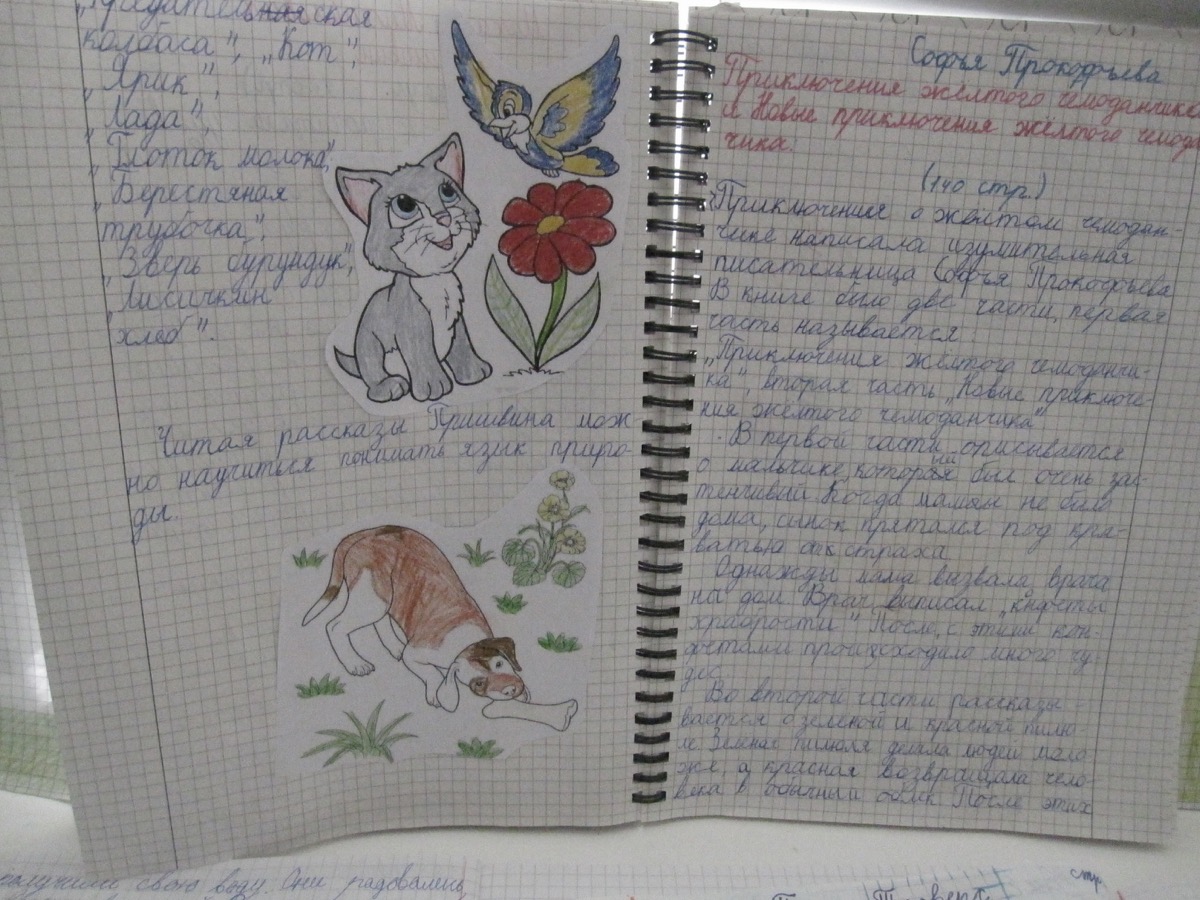 „Предательская
колбаса", „Кот",
„Ярик",
„Лада",
„Глоток молока",
„Берестяная
трубочка",
„Зверь бурундук",
„Лисичкин
хлеб".
Читая рассказы Пришвина мож-
но научиться понимать язык приро-
ды.
Софья Прокофьева
Приключения жёлтого чемоданчика
и Новые приключения жёлтого чемода
чика.
(140 стр.)
Приключения о жёлтом чемодан-
чике написала изумительная
писательница Софья Прокофьева
В книге было две части, первая
часть называется
„Приключения желтого чемоданчи-
ка", вторая часть „Новые приключе-
ния жёлтого чемоданчика"
В первой части описывается
о мальчике, который был очень зас-
тенчивый. Когда мамы не было
дома, сынок прятался под кро-
ватью от страха
Однажды мама вызвала врача
на дом. Врач выписал „кнфеты
храбрости". После, с этими кон-
фетами происходило много чу-
дес.
Во второй части рассказы-
вается о зеленой и красной пилю
ле. Зеленая пилюля делала людей моло
же, а красная возвращала чело-
века в обычный облик. После этих
получили свою воду. Они радовались
стр